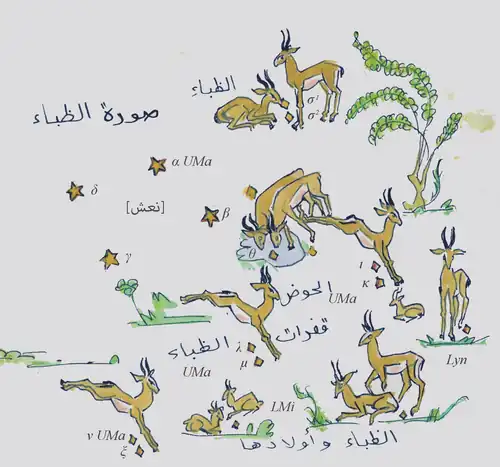 الظباء
صورة الظباء
σ¹
σ²
α UMa
δ
[نعش]
β
γ
θ
ι
κ
الحوض
UMa
قفزات
الظباء
λ
UMa
μ
Lyn
LMi
ν UMa
ξ
الظباء وأولادها